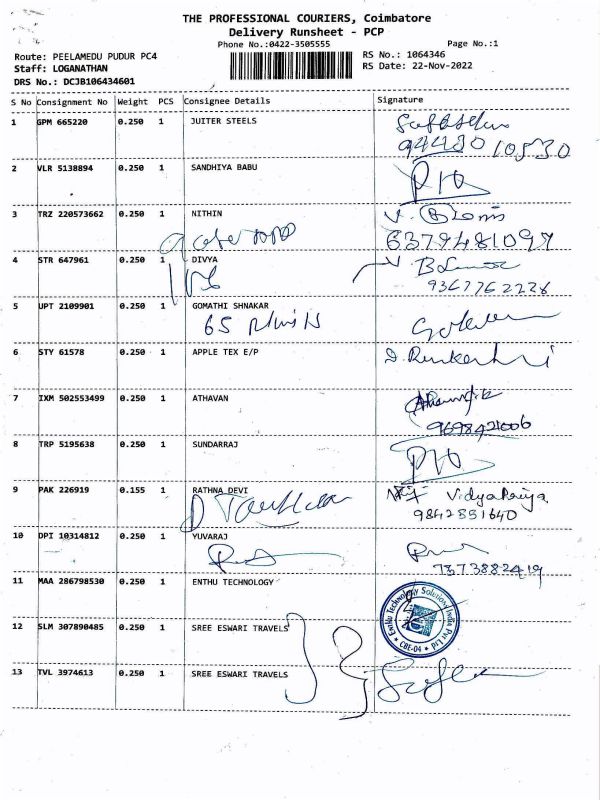 THE PROFESSIONAL COURIERS, Coimbatore
Delivery Runsheet - PCP
Phone No.:0422-3505555 Page No.:1
Route: PEELAMEDU PUDUR PC4 RS No.: 1064346
Staff: LOGANATHAN RS Date: 22-Nov-2022
DRS No.: DCJB106434601
S No Consignment No Weight PCS Consignee Details Signature
1 GPM 665220 0.250 1 JUITER STEELS
94430 10530
2 VLR 5138894 0.250 1 SANDHIYA BABU
3 TRZ 220573662 0.250 1 NITHIN
6379481097
4 STR 647961 0.250 1 DIVYA
9367762228
5 UPT 2109901 0.250 1 GOMATHI SHNAKAR
65
6 STY 61578 0.250 1 APPLE TEX E/P
7 IXM 502553499 0.250 1 ATHAVAN
9698421006
8 TRP 5195638 0.250 1 SUNDARRAJ
9 PAK 226919 0.155 1 RATHNA DEVI VidyaPriya
9842551640
10 DPI 10314812 0.250 1 YUVARAJ
7373882419
11 MAA 286798530 0.250 1 ENTHU TECHNOLOGY
Enthu Technology Solutions India Pvt Ltd
CBE-04
12 SLM 307890485 0.250 1 SREE ESWARI TRAVELS
13 TVL 3974613 0.250 1 SREE ESWARI TRAVELS